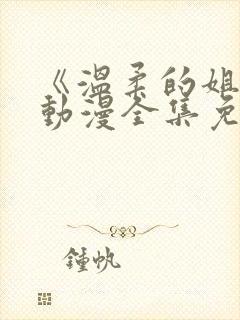 《溫柔的姐
動漫全集免
鍾帆